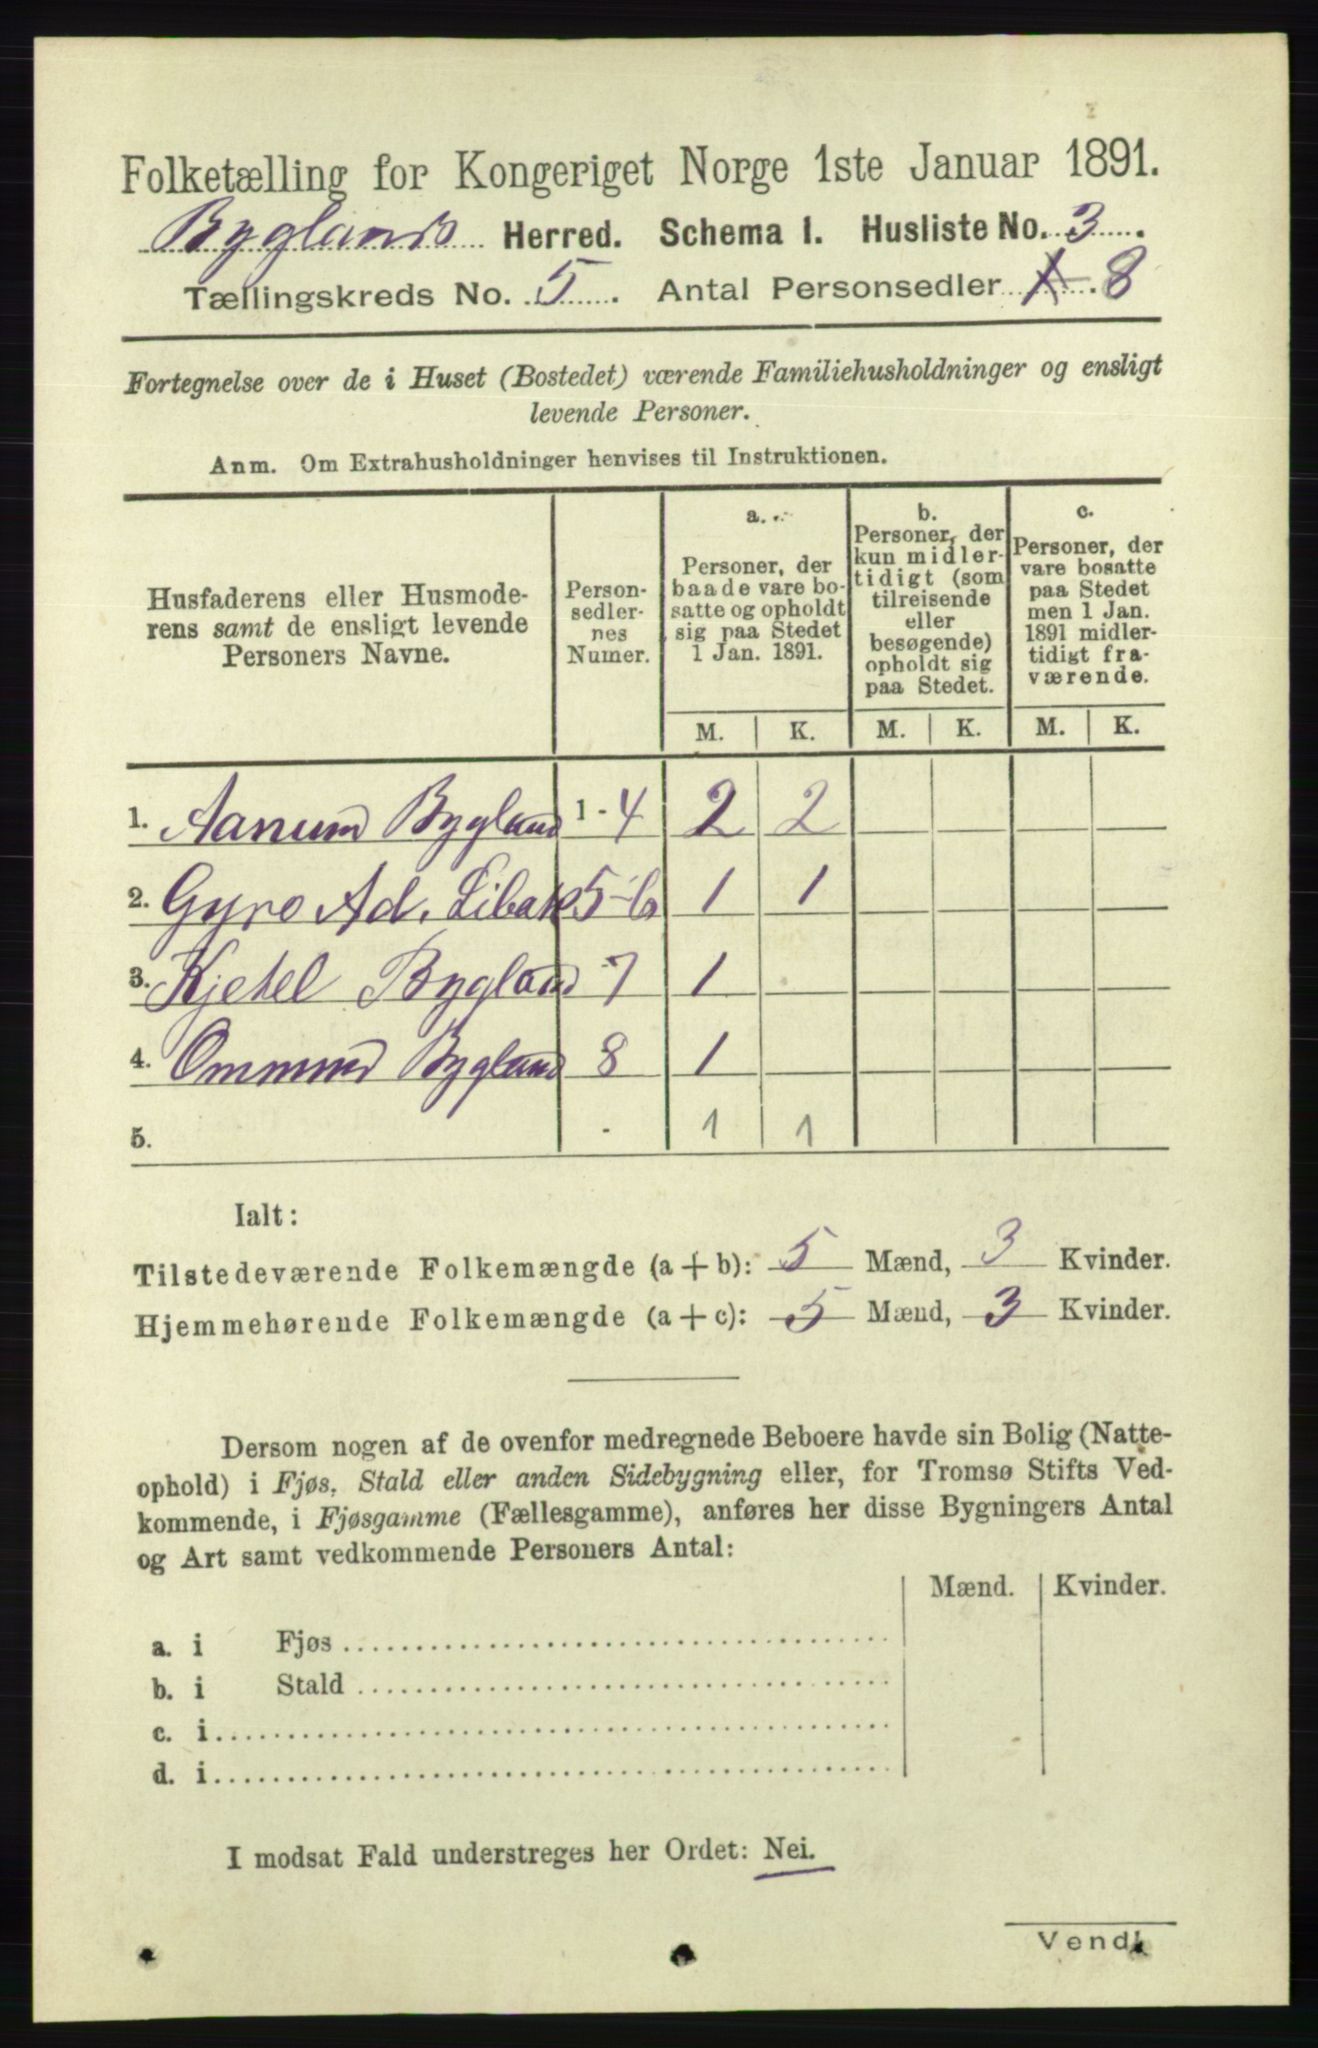 Folketælling for Kongeriget Norge 1ste Januar 1891.
Byglands Herred. Schema I. Husliste No. 3.
Tællingskreds No. 5. Antal Personsedler 8
Fortegnelse over de i Huset (Bostedet) værende Familiehusholdninger og ensligt
levende Personer.
Anm. Om Extrahusholdninger henvises til Instruktionen.
Husfaderens eller Husmode-
rens samt de ensligt levende
Personers Navne.
Person-
sedler-
nes
Numer.
a.
Personer, der
baade vare bo-
satte og opholdt
sig paa Stedet
1 Jan. 1891.
b.
Personer, der
kun midler-
tidigt (som
tilreisende
eller
besøgende)
opholdt sig
paa Stedet.
c.
Personer, der
vare bosatte
paa Stedet
men 1 Jan.
1891 midler-
tidigt fra-
værende.
M. K. M. K. M. K.
1. Aanum Bygland 1-4 2 2
2. Gyro Ad. Libak 5-6 1 1
3. Kjetel Bygland 7 1
4. Ommund Bygland 8 1
5. 1 1
Ialt:
Tilstedeværende Folkemængde (a + b): 5 Mænd, 3 Kvinder.
Hjemmehørende Folkemængde (a + c): 5 Mænd, 3 Kvinder.
Dersom nogen af de ovenfor medregnede Beboere havde sin Bolig (Natte-
ophold) i Fjøs, Stald eller anden Sidebygning eller, for Tromsø Stifts Ved-
kommende, i Fjøsgamme (Fællesgamme), anføres her disse Bygningers Antal
og Art samt vedkommende Personers Antal:
Mænd. Kvinder.
a. i Fjøs
b. i Stald
c. i
d. i
I modsat Fald understreges her Ordet: Nei.
Vend!